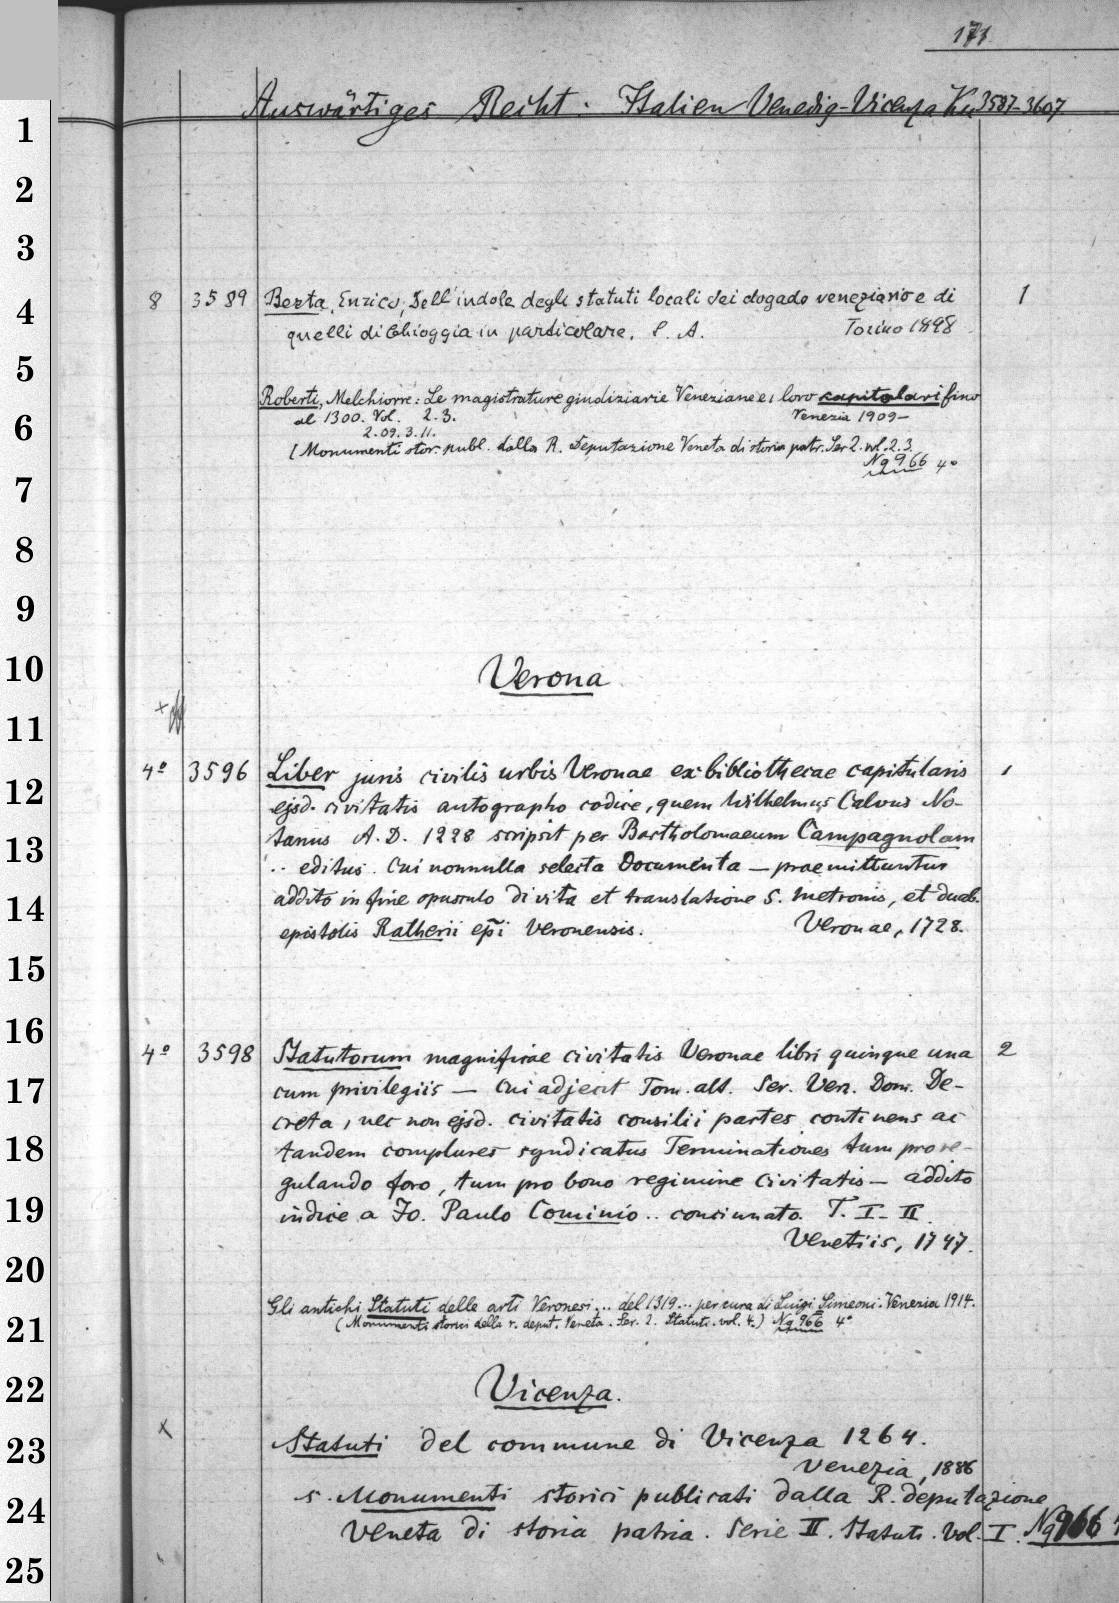 171
Auswärtiges Recht: Italien Venedig-Vicenza Ku 3587-3607
1
2
3
4
5
6
7
8
9
10
11
12
13
14
15
16
17
18
19
20
21
22
23
24
25
8 3589 Berta, Enrico, Dell' indole degli statuti locali dei dogado veneziano e di 1
quelli di Chioggia in particolare. S. A. Torino 1898
Roberti, Melchiorre: Le magistrature giudiziarie Veneziane e i loro capitolari fino
al 1300. Vol. 2.3. Venezia 1909-
2.09. 3.11.
(Monumenti stor. publ. dalla R. Deputazione Veneta di storia patr. Ser 2. vol. 2.3.
Ng 966 4°
Verona
4° 3596 Liber juris civilis urbis Veronae ex bibliothecae capitularis 1
ejsd. civitatis autographo codice, quem Wilhelmus Calvus No-
tarius A. D. 1228 scripsit per Bartholomaeum Campagnolam
.. editus. Cui nonnulla selecta Documenta — praemittuntur
addito in fine opusculo di vita et translatione S. Metronis, et duab.
epistolis Ratherii ep̃i Veronensis. Veronae, 1728.
4° 3598 Statutorum magnificae civitatis Veronae libri quinque una 2
cum privilegiis — Cui adjecit Tom. alt. Ser. Ven. Dom. De-
creta, nec non ejsd. civitatis consilii partes continens ac
tandem complures syndicatus Terminationes tum pro re-
gulando foro, tum pro bono regimine Civitatis — addito
indice a Jo. Paulo Cominio.. concinnato. T. I-II.
Venetiis, 1747.
Gli antichi Statuti delle arti Veronesi... del 1319... per cura di Luigi Simeoni. Venezia 1914.
(Monumenti storici della r. deput. Veneta. Ser. 2. Statuti. vol. 4.) Ng 966 4°
Vicenza.
x Statuti del commune di Vicenza 1264.
Venezia, 1886
s. Monumenti storici publicati dalla R. deputazione
Veneta di storia patria. Serie II. Statuti. Vol. I. Ng 966